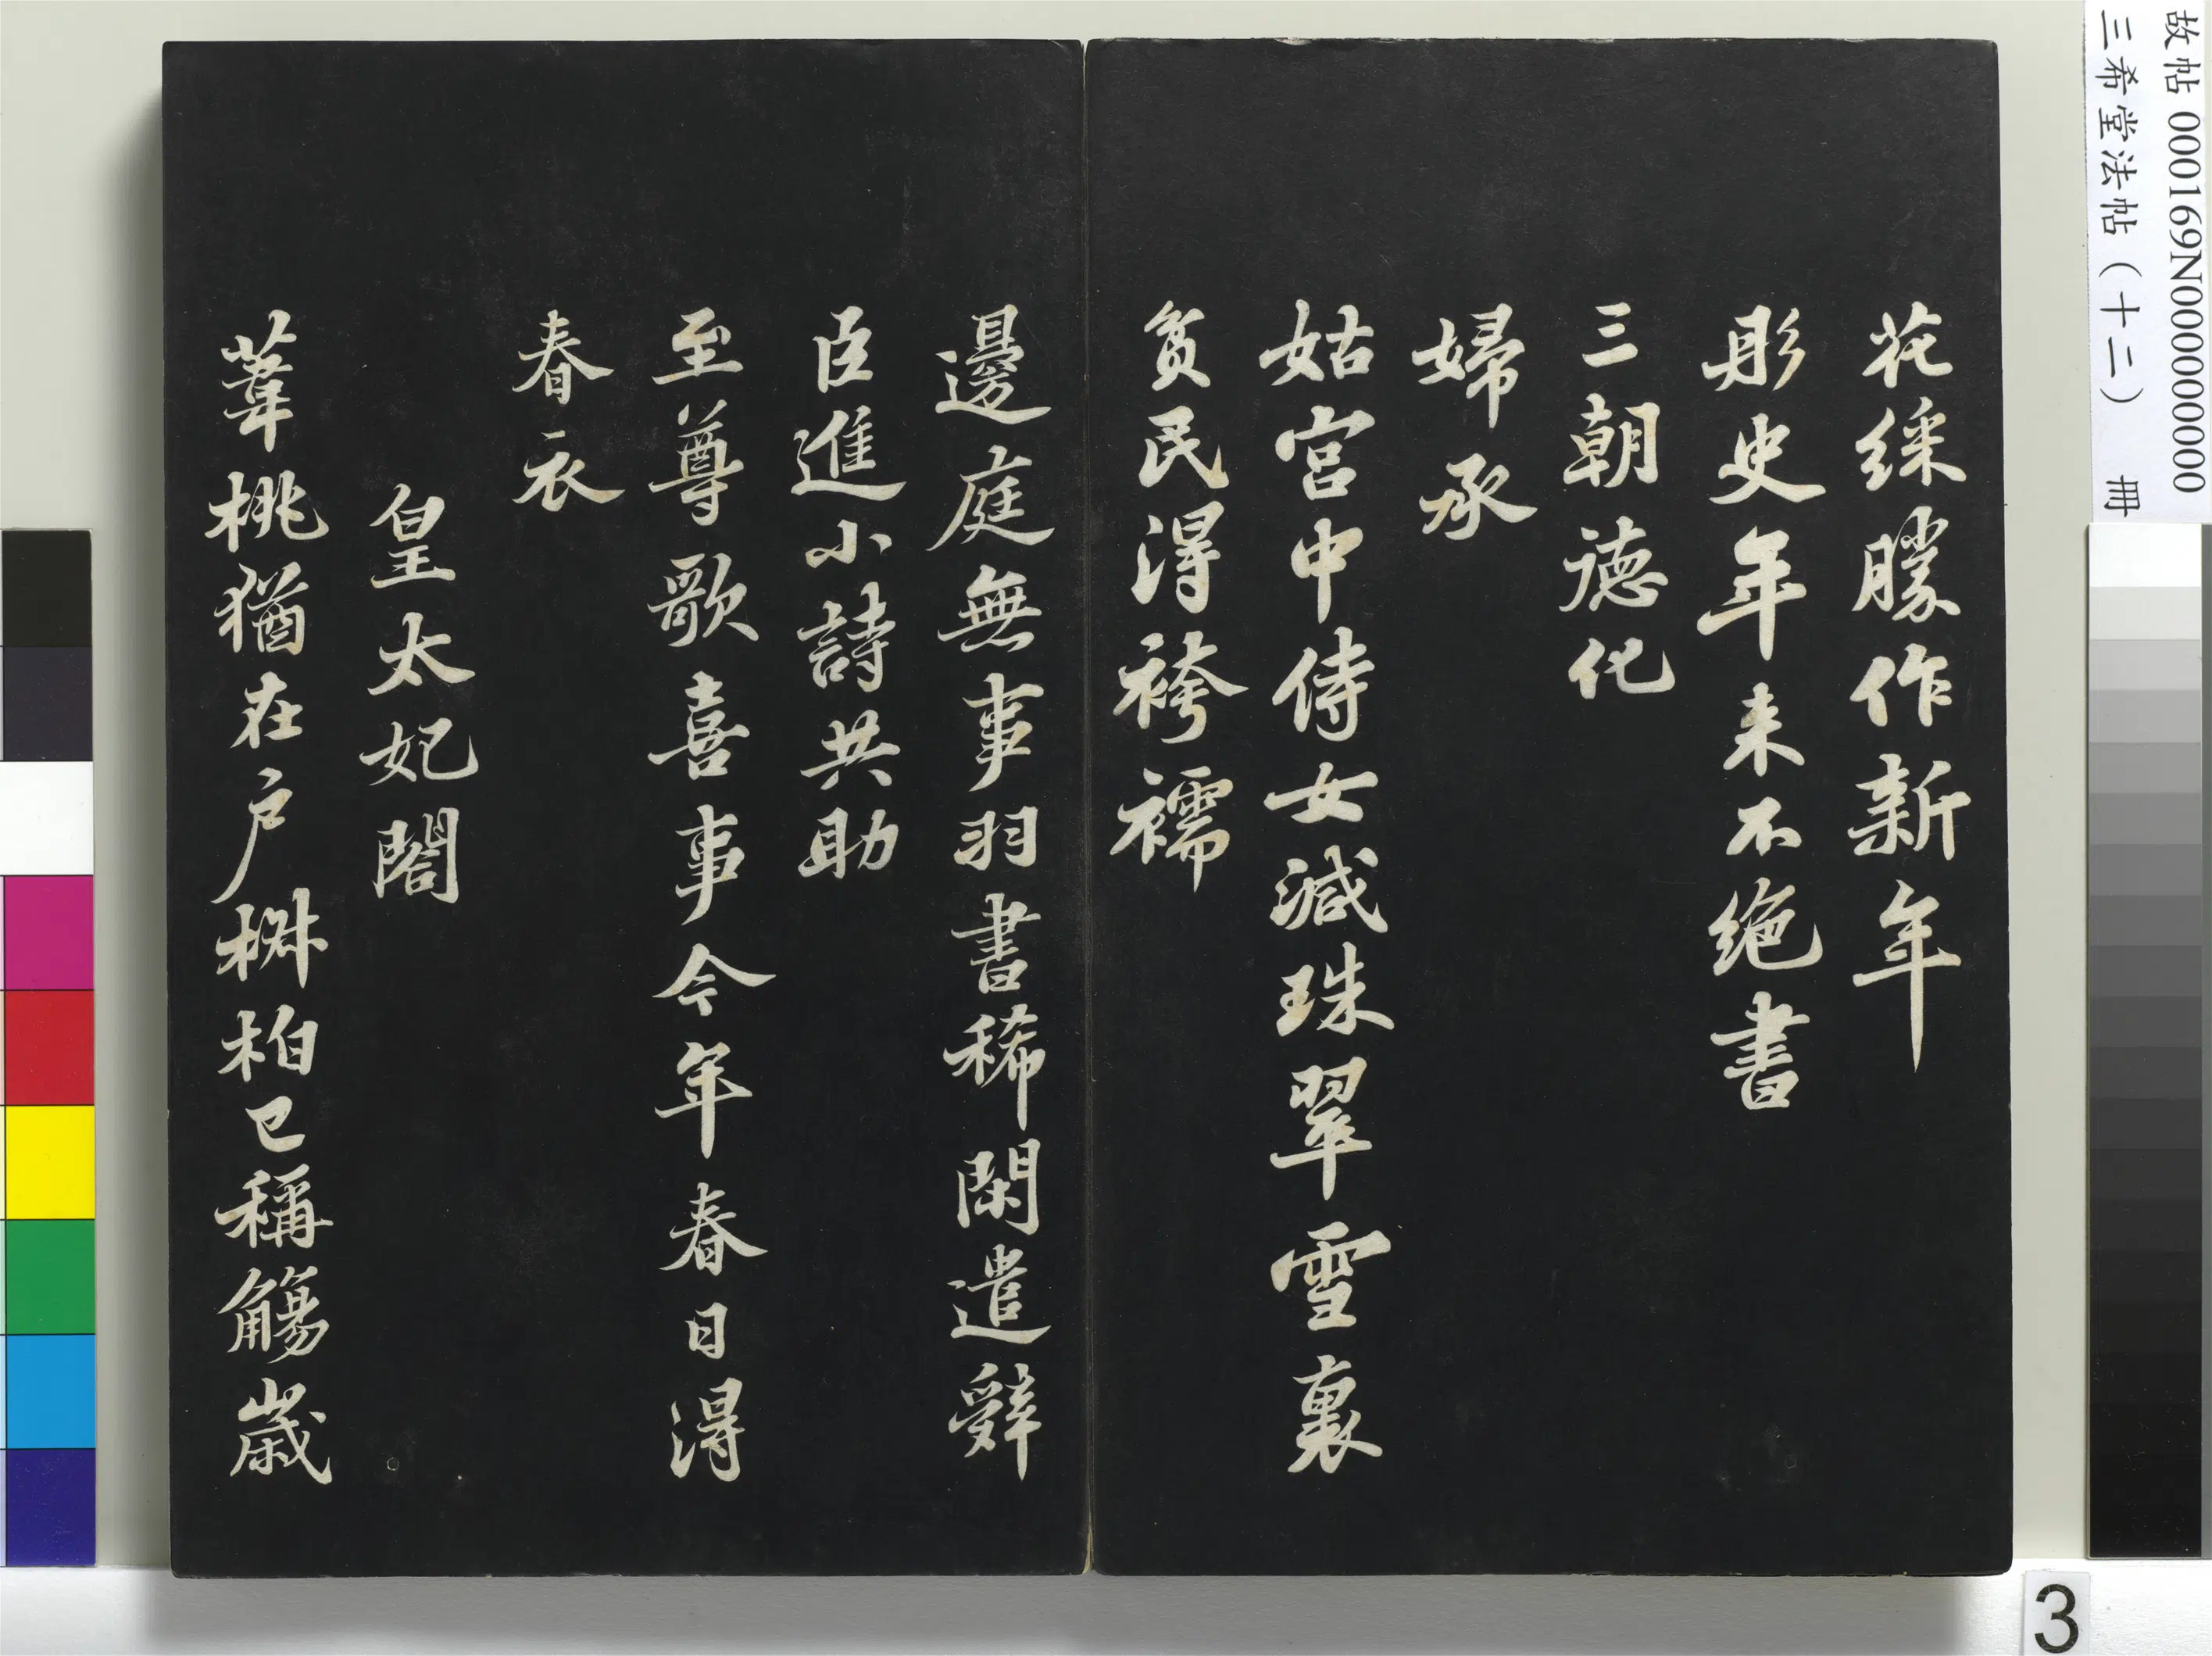 花綵勝作新年
彤史年年来不絕書
三朝德化
婦承
姑宮中侍女減珠翠雪裏
貧民得袴襦
邊庭無事羽書稀閑遣辭
臣進小詩共助
至尊歌喜事今年春日得
春衣
皇太妃閣
葦桃猶在戶椒柏已稱觴歲
故帖 000169N000000000
三希堂法帖（十二） 冊
3